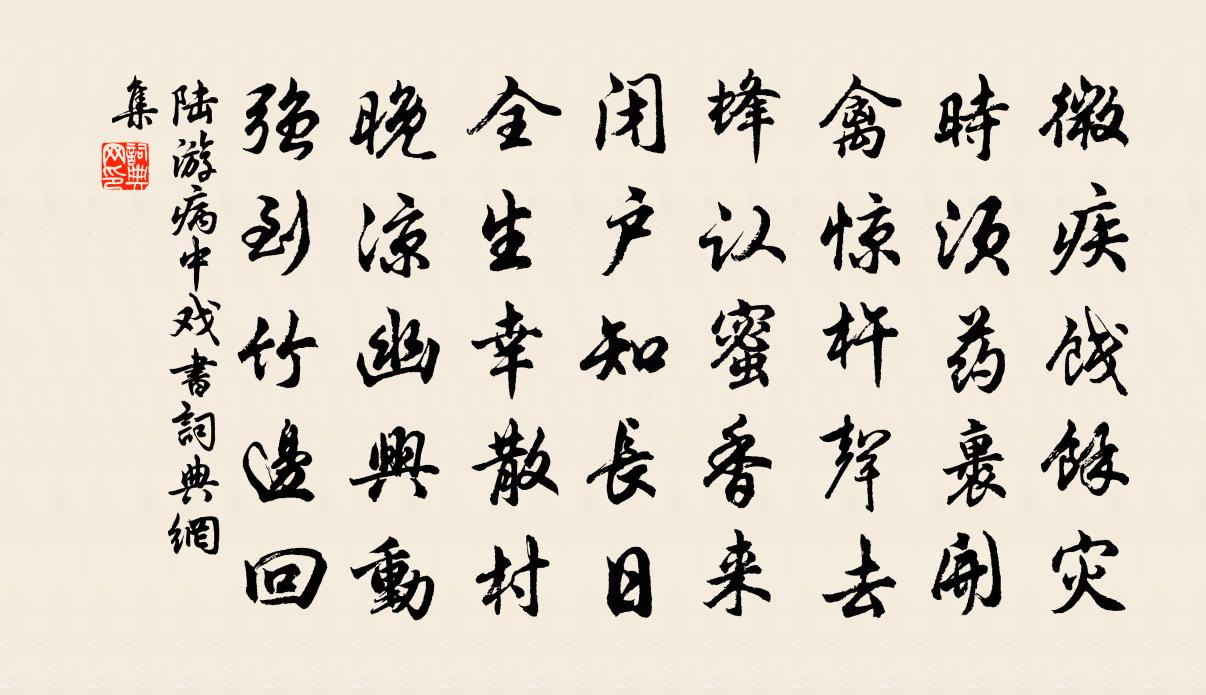 微疾饯馀灾
時须药裹開
禽惊杵聲去
蜂认蜜香来
闭户知長日
全生幸散村
晚凉幽興動
强到竹邊回
陆游病中戏書詞典網
集
詞典网印